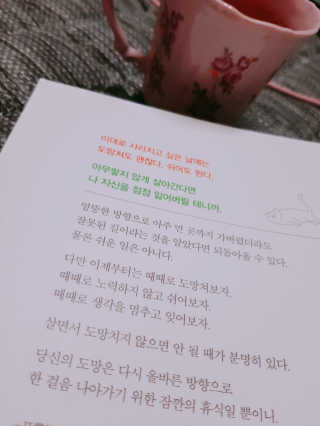 이대로 사라지고 싶은 날에는
도망쳐도 괜찮다. 쉬어도 된다.
아무렇지 않게 살아간다면
나 자신을 점점 잃어버릴 테니까.
엉뚱한 방향으로 아주 먼 곳까지 가버렸더라도
잘못된 길이라는 것을 알았다면 되돌아올 수 있다.
물론 쉬운 일은 아니다.
다만 이제부터는 때때로 도망쳐보자.
때때로 노력하지 않고 쉬어보자.
때때로 생각을 멈추고 잊어보자.
살면서 도망치지 않으면 안 될 때가 분명히 있다.
당신의 도망은 다시 올바른 방향으로
한 걸음 나아가기 위한 잠깐의 휴식일 뿐이니.